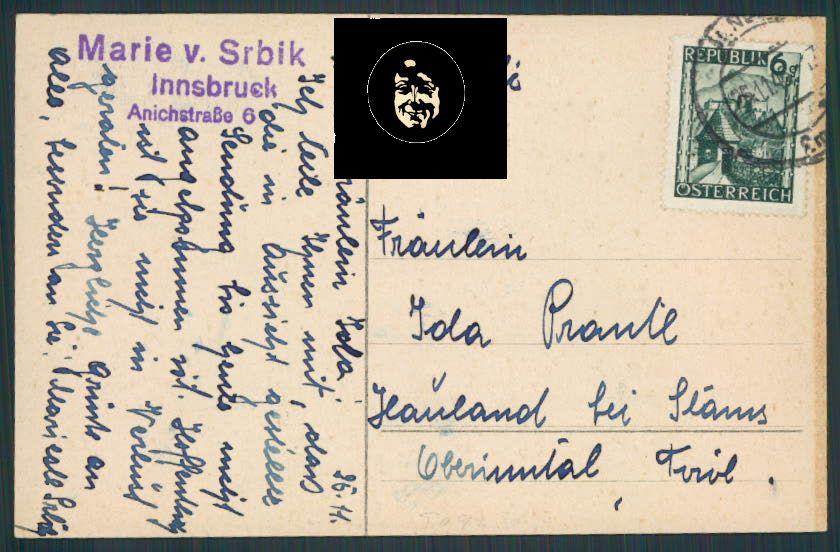 Marie v. Srbik
Innsbruck
Anichstraße 6
REPUBLIK 6
ÖSTERREICH
Fräulein
Ida Prantl
Hauland bei Stams
Oberinntal, Tirol.
26.11.
Fräulein Ida!
Ich teile Ihnen mit, dass
die in Aussicht gestellte
Sendung bis heute nicht
angekommen ist. Hoffentlich
ist sie nicht in Verlust
geraten! Herzlichst Grüsse an
alle, besonders an Sie!